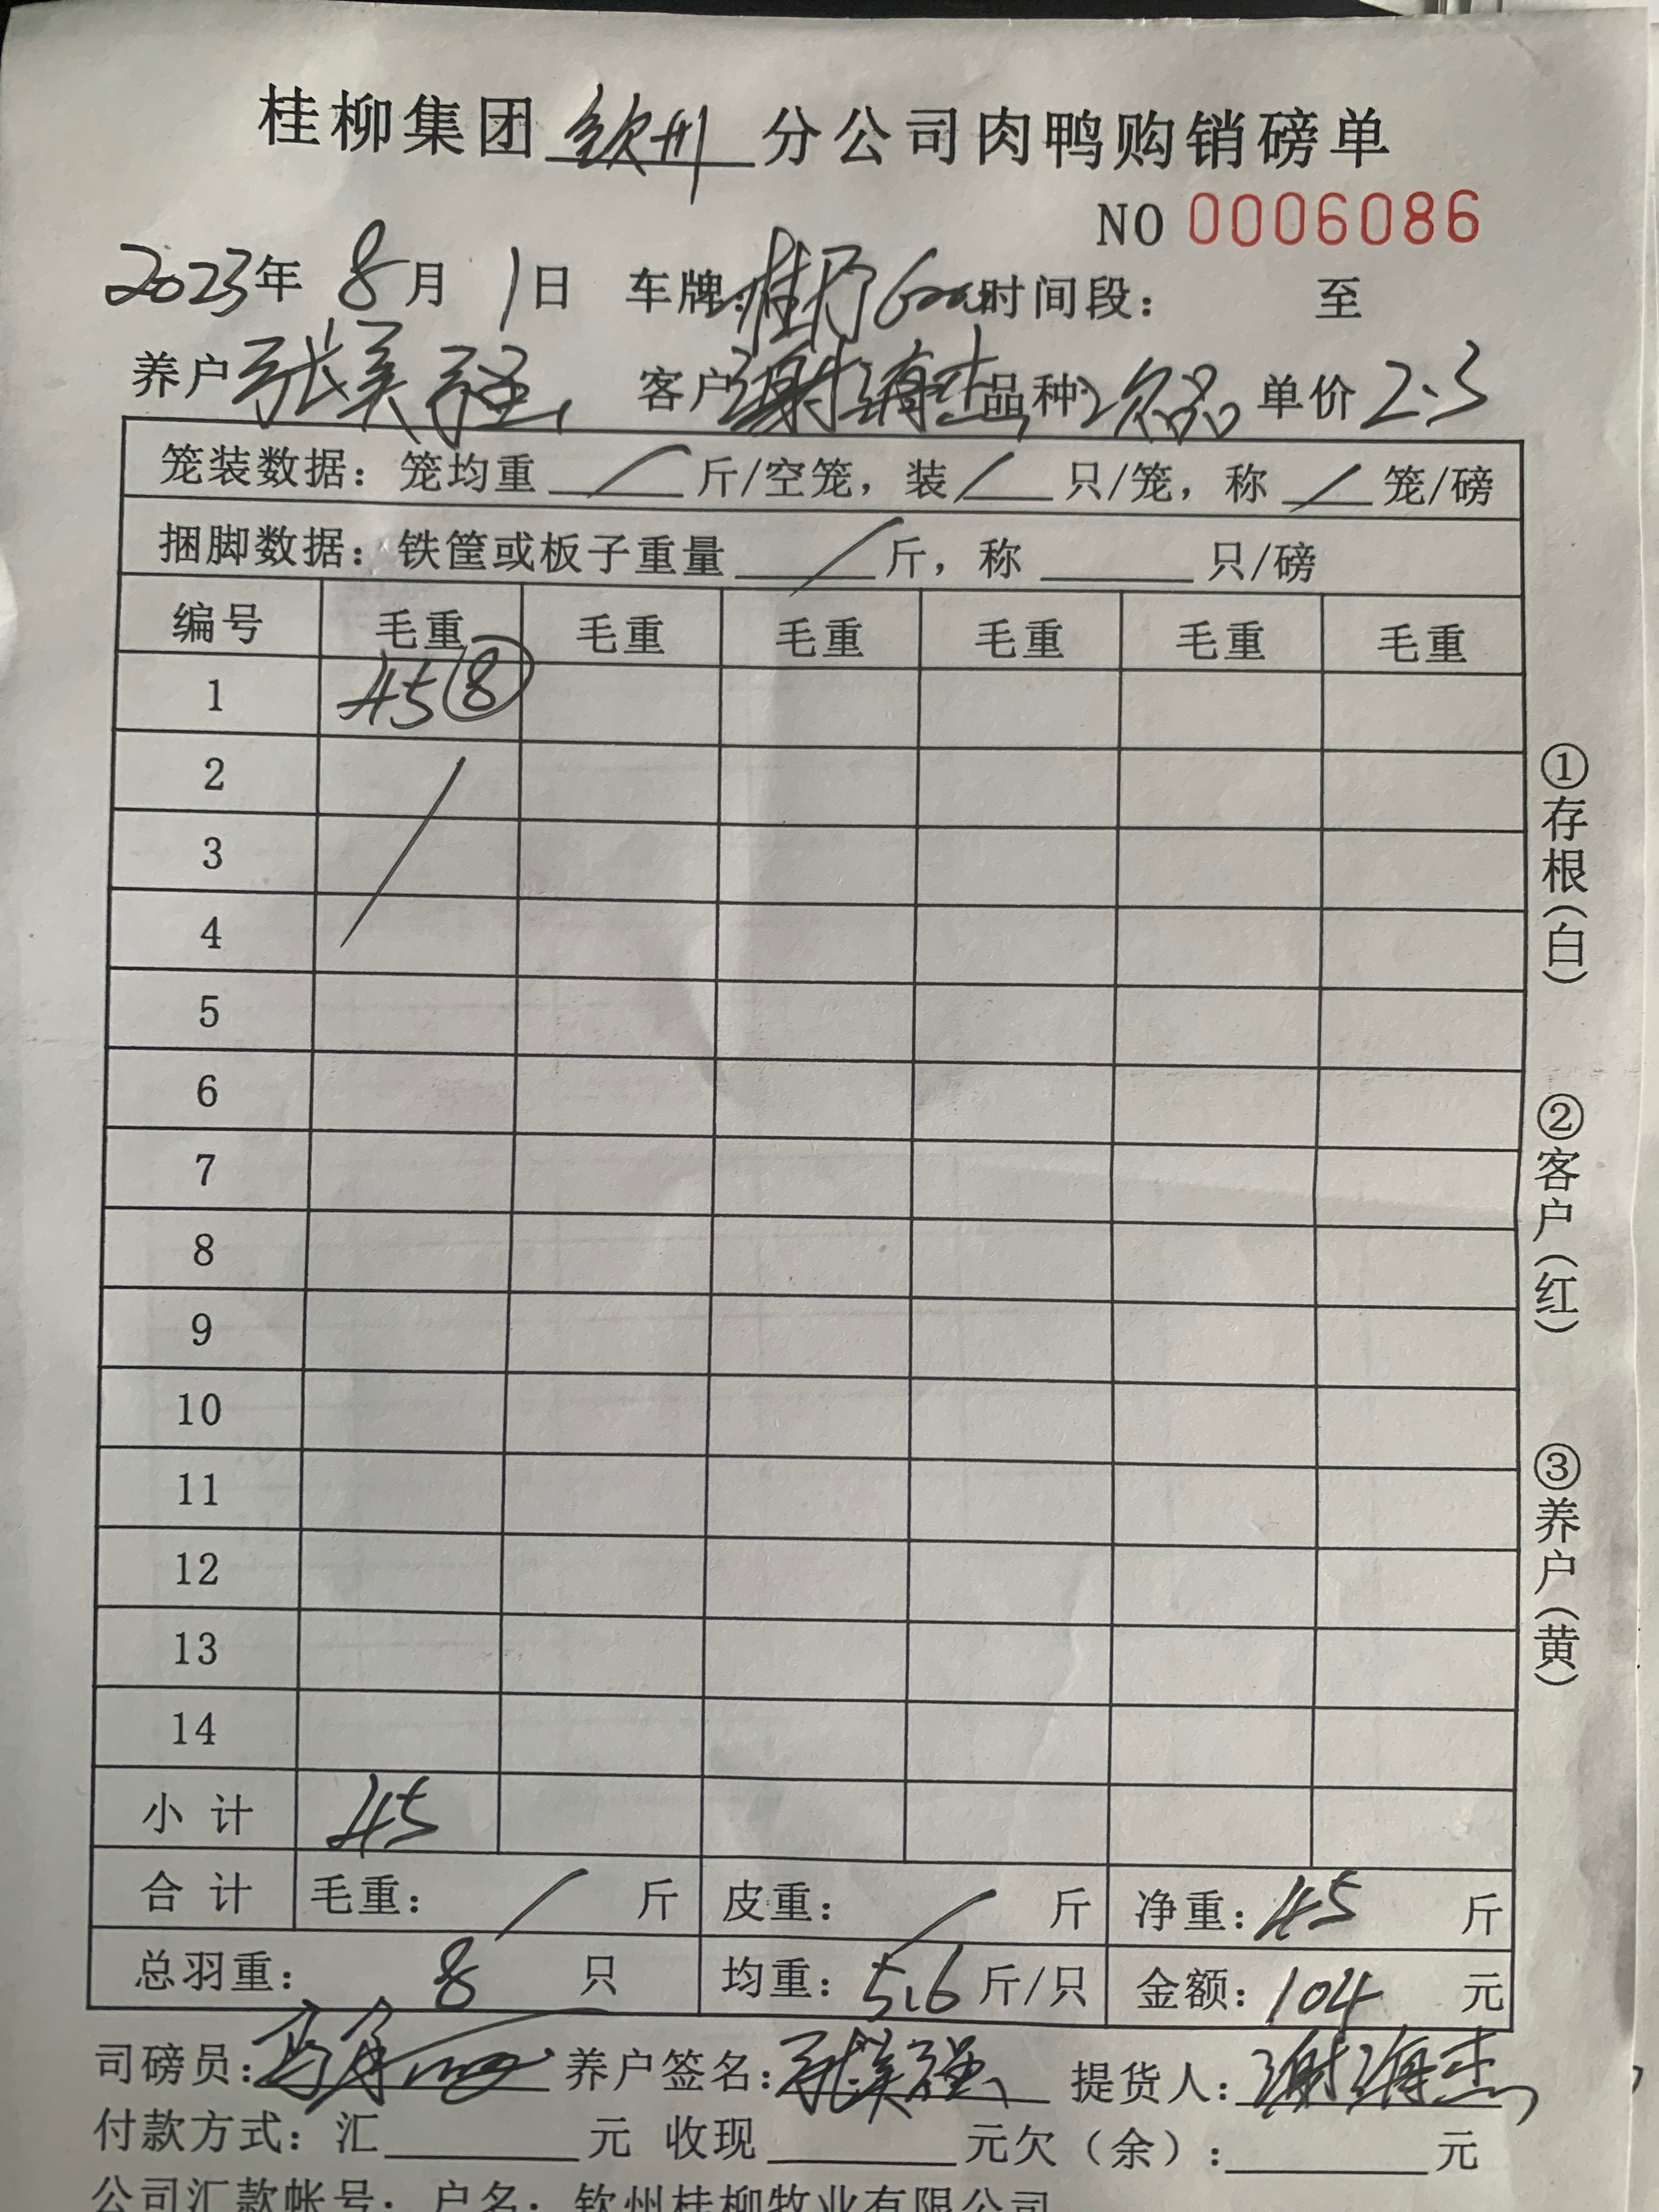 桂柳集团钦州分公司肉鸭购销磅单
NO 0006086
2023年 8月 1日 车牌: 时间段： 至
养户 张美强 客户 谢海杰 品种 次品 单价 2.3
笼装数据：笼均重 / 斤/空笼，装 / 只/笼，称 / 笼/磅
捆脚数据：铁筐或板子重量 / 斤，称 只/磅
编号 毛重 毛重 毛重 毛重 毛重 毛重
1 45 ⑧
2
3
4
5
6
7
8
9
10
11
12
13
14
小计 45
合计 毛重： / 斤 皮重： / 斤 净重：45 斤
总羽重： 8 只 均重：5.6 斤/只 金额：104 元
司磅员: 养户签名：张美强 提货人：谢海杰
付款方式：汇 元 收现 元欠（余）: 元
公司汇款帐号：户名：钦州桂柳牧业有限公司
①存根（白）
②客户（红）
③养户（黄）